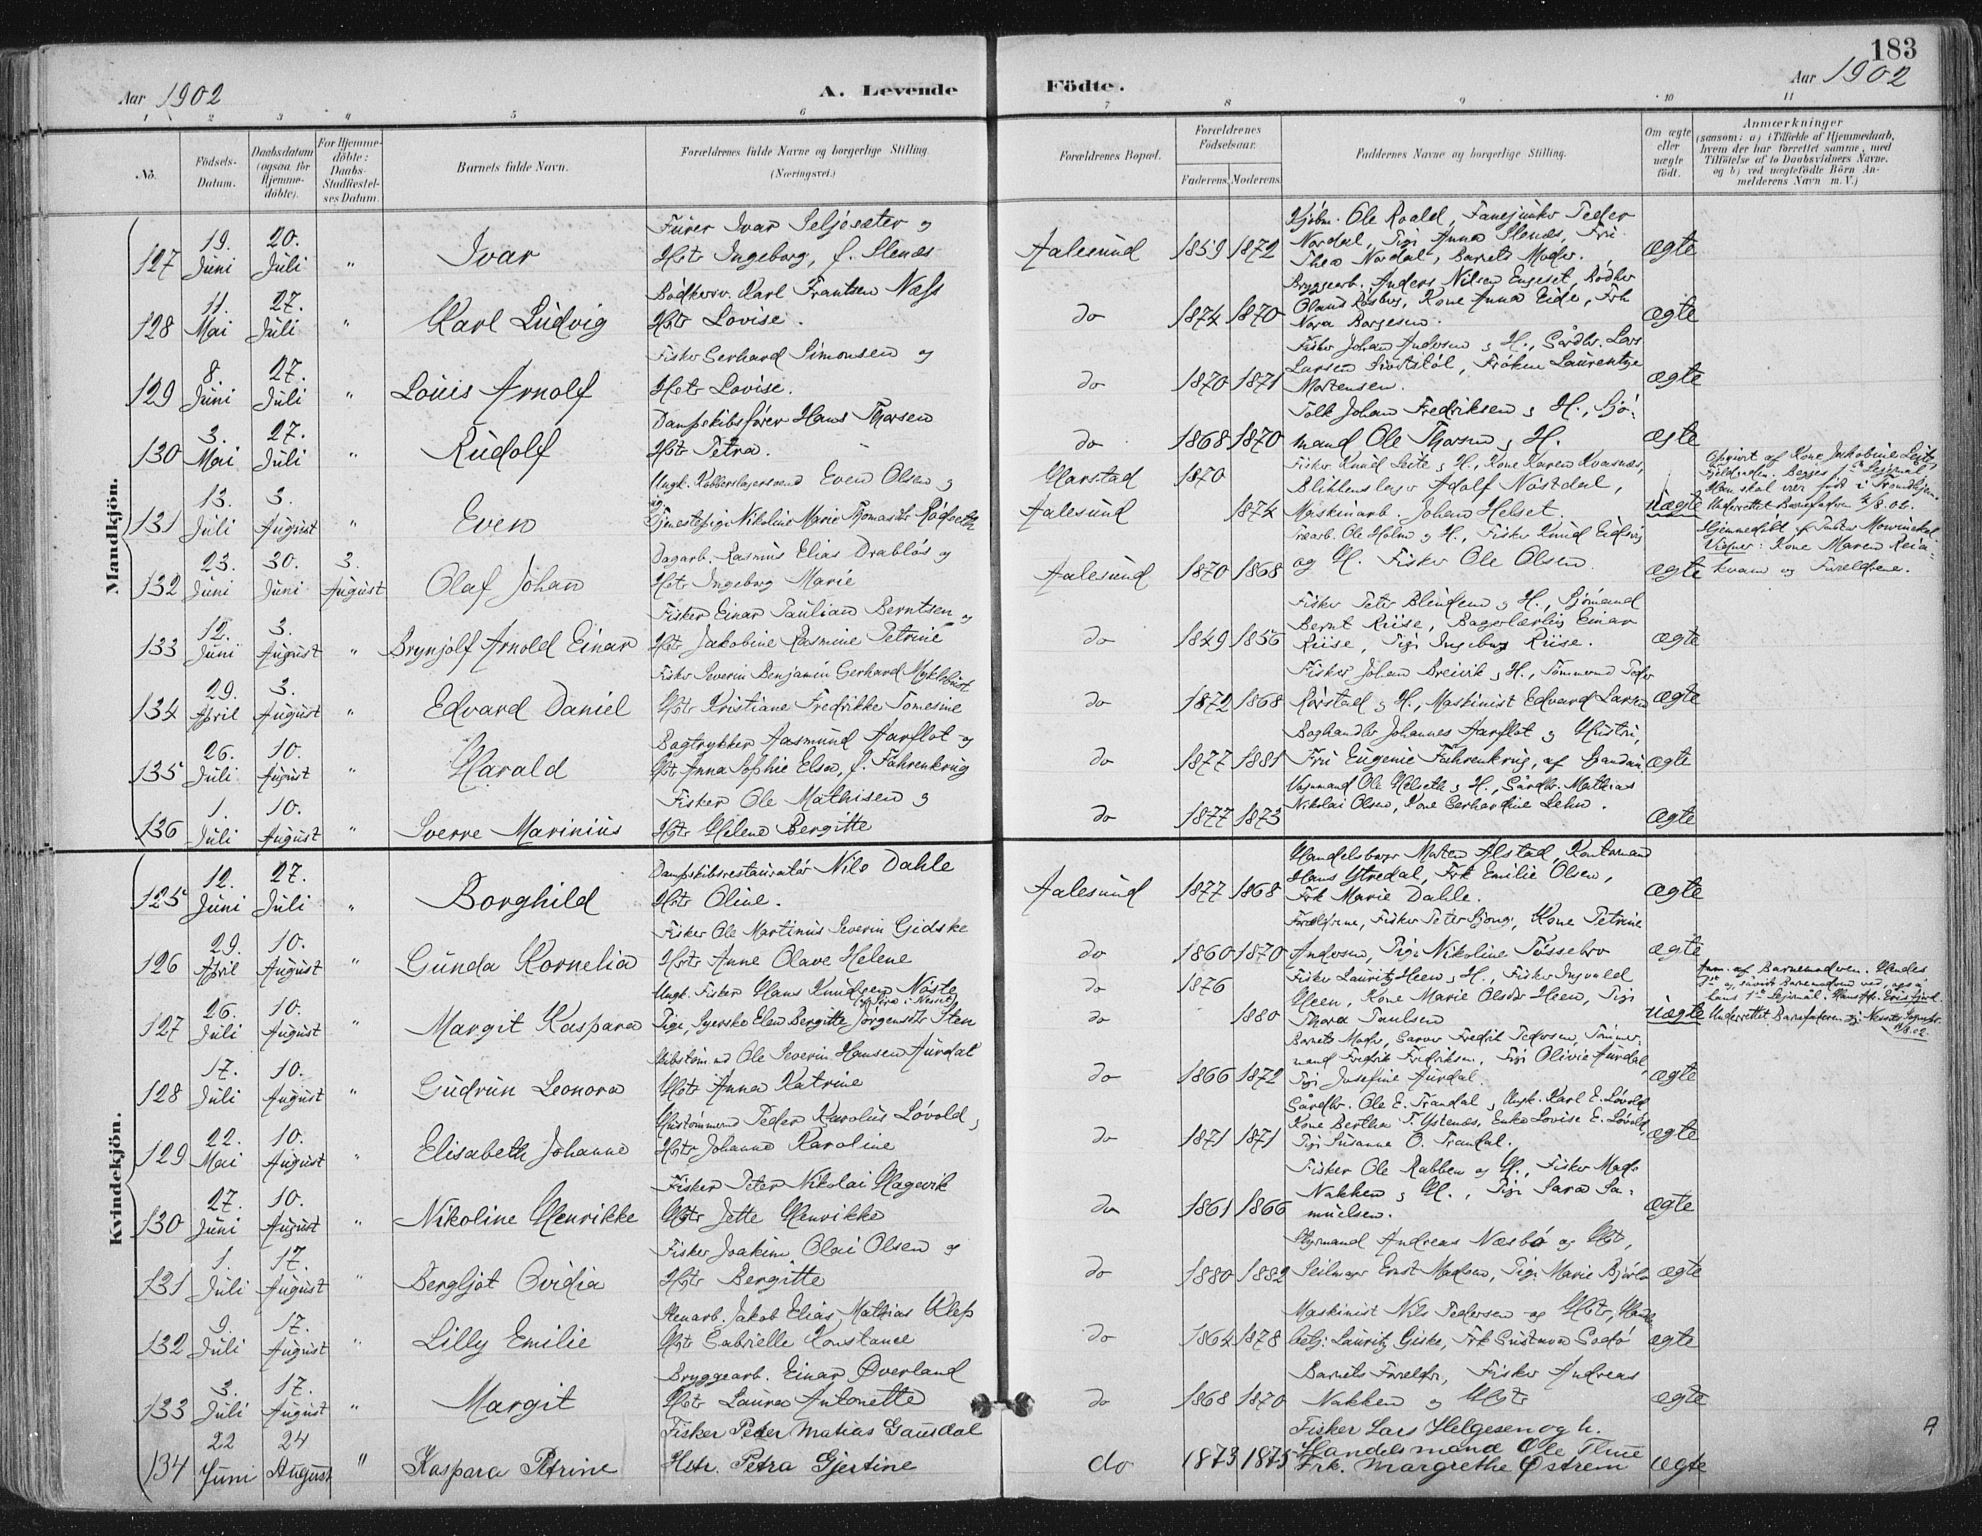 183
Aar 1902
A. Levende
Födte.
Aar 1902
1 2 3 4 5 6 7 8 9 10 11
No.
Födsels-Datum.
Daabsdatum (ogsaa for Hjemme-döbte).
For Hjemme-döbte: Daabs-Stadfæstel-ses Datum.
Barnets fulde Navn.
Forældrenes fulde Navne og borgerlige Stilling. (Næringsvei.)
Forældrenes Bopæl.
Forældrenes Födselsaar.
Faderens. Moderens.
Faddernes Navne og borgerlige Stilling.
Om ægte eller uægte födt.
Anmærkninger
(saasom: a) i Tilfælde af Hjemmedaab,
hvem der har forrettet samme, med
Tilföielse af to Daabsvidners Navne,
og b) ved uægtefödte Börn An-
melderens Navn m. V.)
Mandkjön.
127 19. Juni 20. Juli " Ivar
Furer Ivar Seljesæter og
Hstr Ingeborg, f. Stenæs
Aalesund 1859 1872
Kjöbm. Ole Roald, Fanejunker Peder
Nordal, Pige Anna Stenæs, Fru
Thea Nordal, Barnets Moder.
ægte
128 11. Mai 27. Juli " Karl Ludvig
Bödkersv. Karl Frantsen Næss
Hstr Lovise.
do 1874 1870
Bryggearb. Anders Nilsen Engeset, Bödker
Kone Anna Eide, Frk
Nora Borgesen.
ægte
129 8. Juni 27. Juli " Louis Arnolf
Fisker Gerhard Simonsen og
Hstr Lovise.
do 1870 1871
Fisker Johan Andersen & H., Gårdbr. Lars
Larsen, Fröken Laurentze
Mortensen.
ægte
130 3. Mai 27. Juli " Rudolf
Dampskibsförer Hans Thorsen
Hstr Petra.
do 1868 1870
Tolk Johan Fredriksen & H., Sjö-
mand Ole Thorsen & H.
ægte
131 13. Juli 3. August " Even
Ungk. Kobberslagersvend Even Olsen &
Tjenestepige Nikoline Marie Thomasdtr Rödseth
Harstad 1870
Aalesund 1874
Fisker Knud Leite & H., Kone Karen Kvasnæs,
Blikkenslager Adolf Nöstdal,
Maskinarb. Johan Helset.
uægte
Opgivet af Kone Jakobine Leite,
Begges 1ste Leiermål
Han skal være född i Trondhjem.
Underrettet Barnefaderen 4/8.02.
132 23. Juni 30. Juni 3. August Olaf Johan
Dagarb. Rasmus Elias Drablös og
Hstr Ingeborg Marie
Aalesund 1870 1868
Træarb. Ole Holm og H., Fisker Knud Eidsvig
og H. Fisker Ole Olsen.
ægte
Hjemmedöbt af Pastor Mowinckel.
Vidner: Kone Maren Reia-
kvam og Forældrene.
133 12. Juni 3. August " Brynjolf Arnold Einar
Fisker Einar Paulian Berntsen og
Hstr Jakobine Rasmine Petrine
do 1849 1856
Fisker Peter Blindem & H., Sjömand
Bernt Riise, Bagerlærling Einar
Riise, Pige Ingeborg Riise.
ægte
134 29. April 3. August " Edvard Daniel
Fisker Severin Benjamin Gerhard Myklebust
Hstr Kristiane Fredrikke Tomesine
do 1872 1868
Fisker Johan Breivik & H., Tömmermd Peder
Rörstad & H., Maskinist Edvard Larsen
ægte
135 26. Juli 10. August " Harald
Bogtrykker Aasmund Aarflot og
Hst Anna Sophie Elsa, f. Fahrenkrug
do 1877 1881
Boghandler Johannes Aarflot & Hustru,
Fru Eugenie Fahrenkrug, af
ægte
136 1. Juli 10. August " Sverre Marinius
Fisker Ole Mathisen &
Hstr Helene Bergitte
do 1877 1873
Vognmand Ole Helseth & H., Gårdbr. Mathias
Nikolai Olsen, Kone Gerhardine Lehn.
ægte
Kvindekjön.
125 12. Juni 27. Juli " Borghild
Dampskibsrestauratör Nils Dahle
Hstr Oline.
Aalesund 1877 1868
Handelsborger Morten Alstad, Kontormand
Hans Ytredal, Frk Emilie Olsen,
Frk Marie Dahle.
ægte
126 29. April 10. August " Gunda Kornelia
Fisker Ole Martinus Severin Gidske
Hstr Anne Olave Helene
do 1860 1870
Forældrene, Fisker Peter Bjong, Kone Petrine
Andersen, Pige Nikoline Tössebro
ægte
127 26. Juli 10. August " Margit Kaspara
Ungk. Fisker Hans Knudsen Nöste
Pige, Syerske Elen Bergitte Jörgensdtr Sten
do 1876
do 1880
Fisker Lauritz Heen & H., Fisker Ingvald
Heen, Kone Marie Olsdtr Heen, Pige
Thora Paulsen
uægte
Anm. af Barnemoderen. Hendes
Underrettet Barnefaderen
128 17. Juli 10. August " Gudrun Leonora
Skibstöm. md Ole Severin Hansen Aurdal
Hstr Anna Katrine
do 1866 1872
Barnets Moder, Garver Fredrik Pedersen, Tömmer-
mand Fredrik Fredriksen, Pige Olivie Aurdal,
Pige Josefine Aurdal.
ægte
129 22. Mai 10. August " Elisabeth Johanne
Hustömmermd Peder Karolus Lövold,
Hstr Johanne Karoline
do 1871 1871
Gårdbr. Ole E. Trandal, Ungk. Karl E. Lövold
Kone Bertha T. Ystenæs, Enke Lovise E. Lövold,
Pige Susanna O. Trandal.
ægte
130 27. Juni 10. August " Nikoline Henrikke
Fisker Peter Nikolai Hagevik
Hstr Jette Henrikke
do 1861 1866
Fisker Ole Rabben og H., Fisker Mads
Nakken & H., Pige Sara Sa-
muelsen.
ægte
131 1. Juli 17. August " Bergljot Ovidia
Fisker Joakim Olai Olsen og
Hstr Bergitte
do 1880 1882
Styrmand Andreas Næsbö og Hst,
Seilmager Ernst Madsen, Pige Marie Björlo
ægte
132 9. Juli 17. August " Lilly Emilie
Stenarb. Jakob Elias Mathias Klep
Hstr Gabrielle Konstance
do 1864 1878
Maskinist Nils Pedersen og Hstr, Hand-
betj: Lauritz Giske, Frk Gustava Godö
ægte
133 3. Juli 17. August " Margit
Bryggearb. Einar Överland
Hstr Laura Antonette
do 1868 1870
Barnets Forældre, Fisker Andreas
Nakken & Hstr
ægte
134 22 Juni 24 August " Kaspara Petrine
Fisker Peder Matias Gausdal
Hstr. Petra Gjertine
do 1873 1875
Fisker Lars Helgesen og h.
Handelsmand Ole Thue
Frk. Margrethe Östrem
ægte